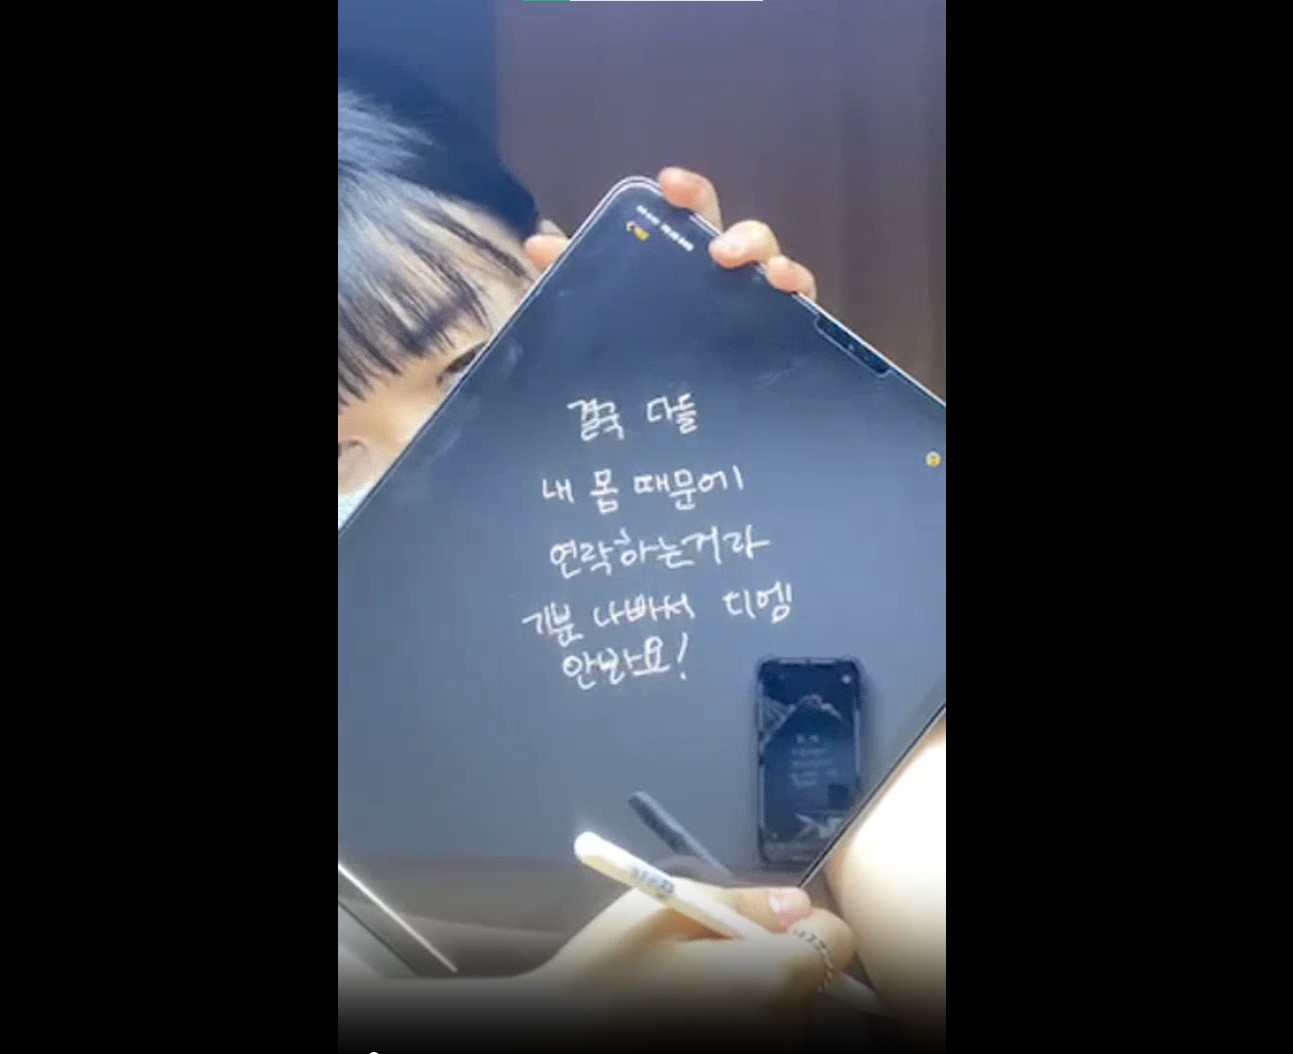 결국 다들
내 몸 때문에
연락하는거라
기분 나빠서 디엠
안봐요!